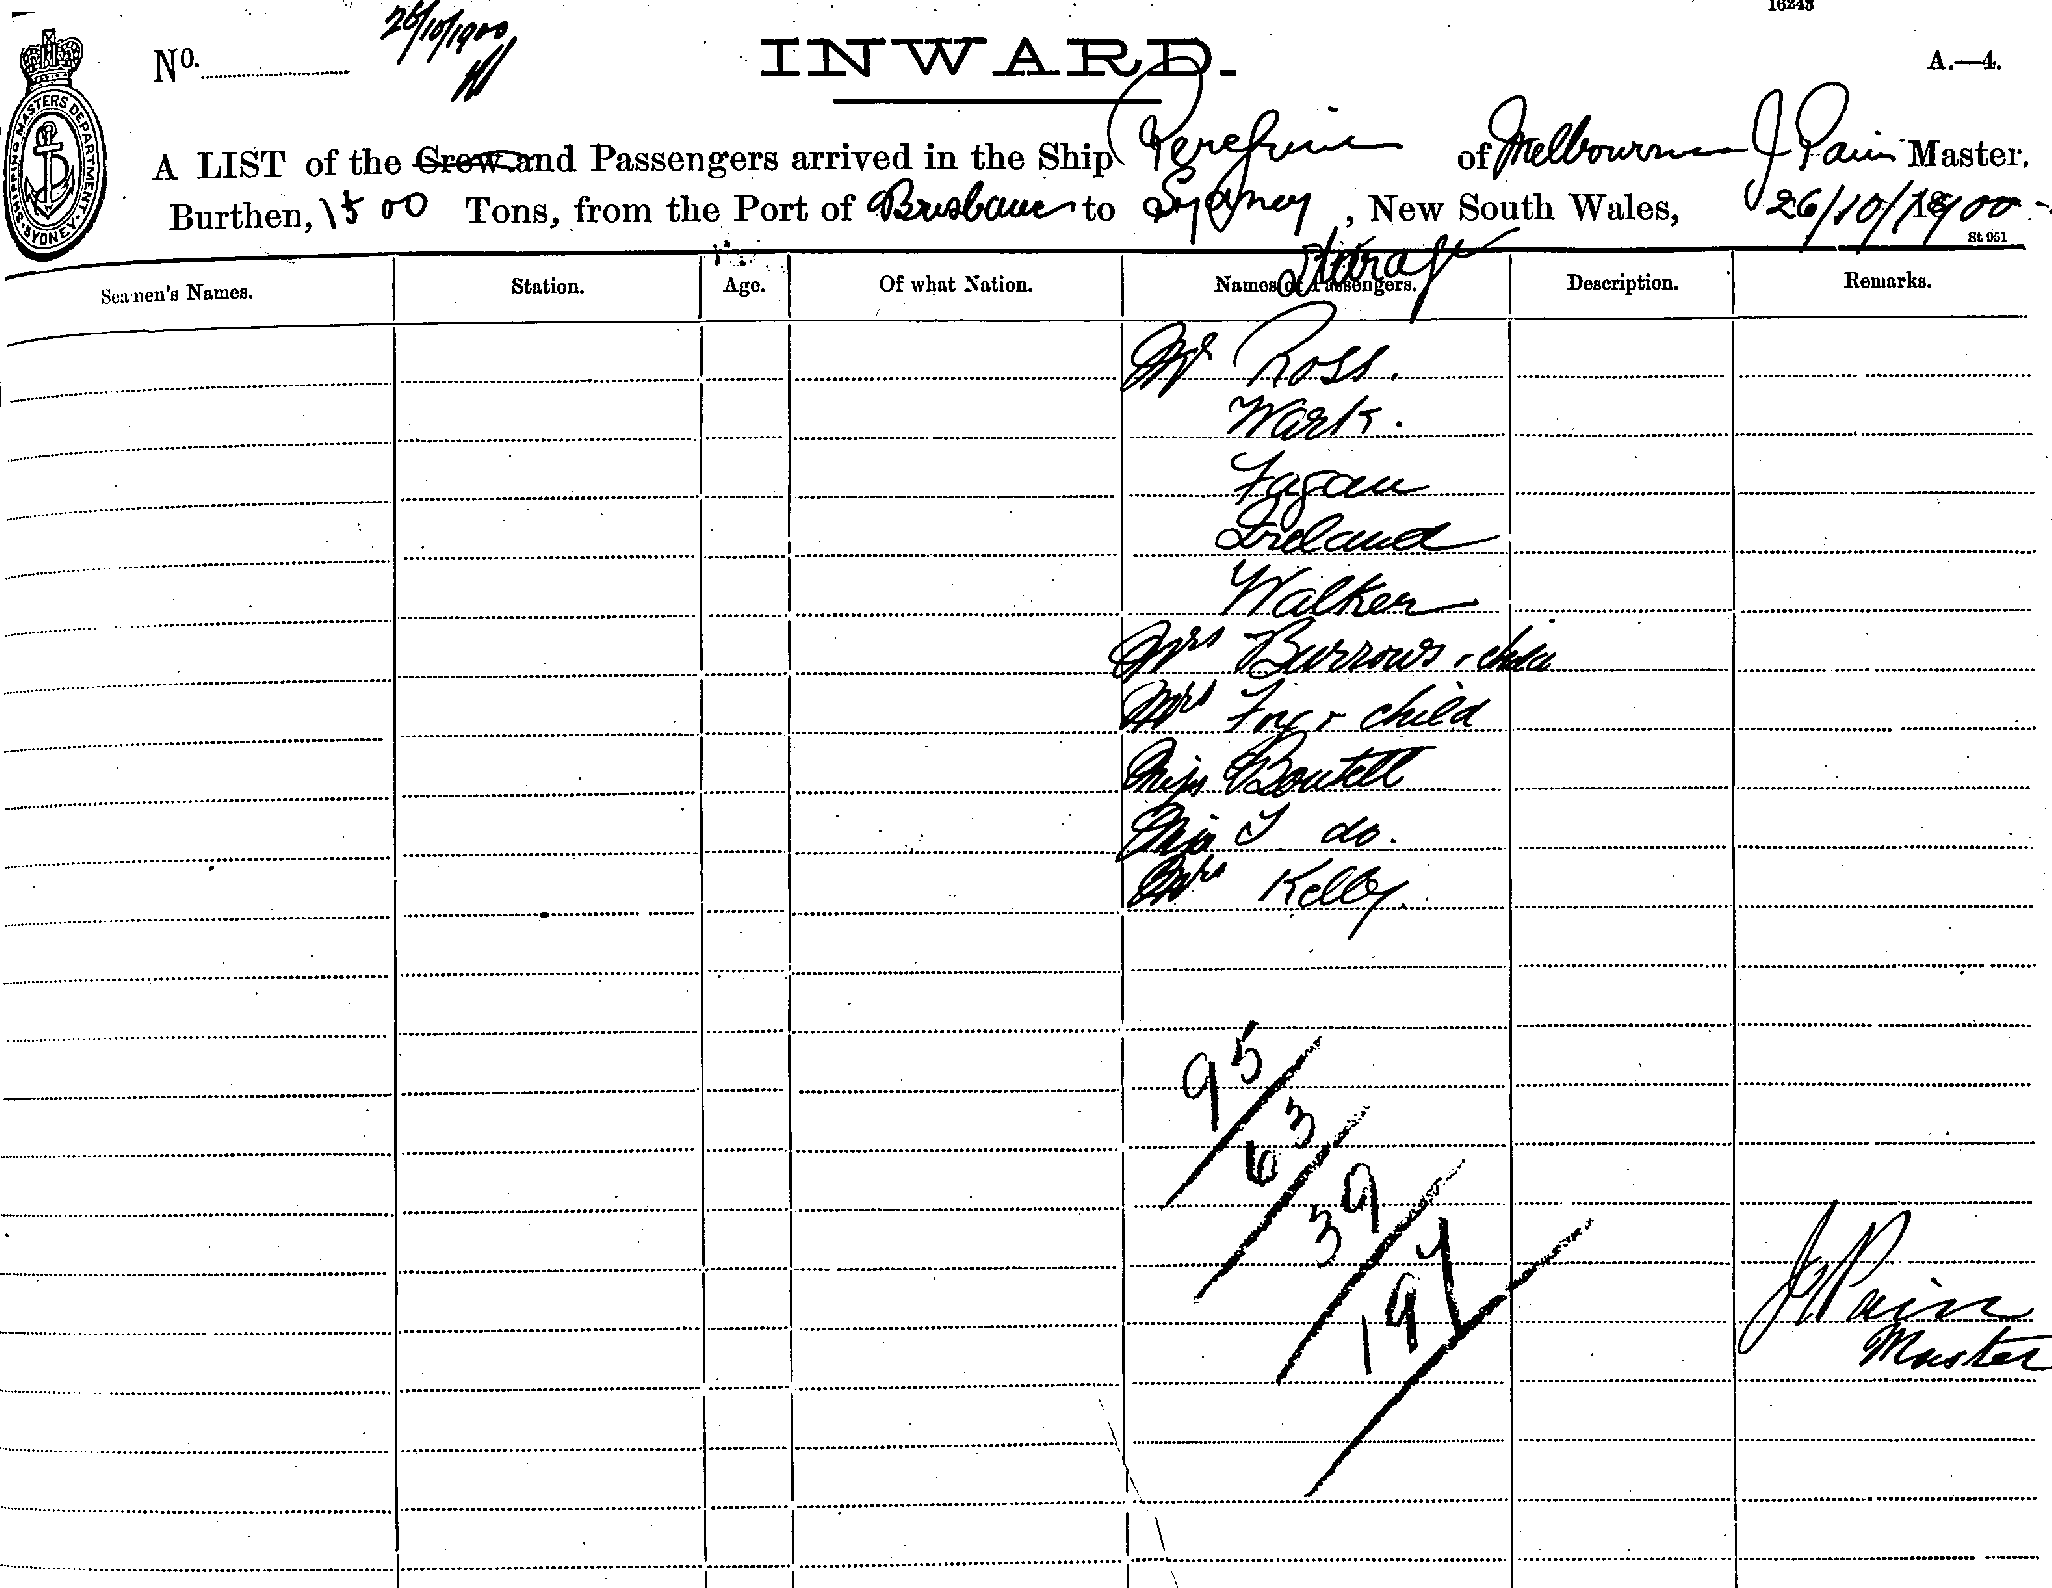 16243
26/10/1900
No.
INWARD.
A.—4.
SHIPPING MASTERS DEPARTMENT SYDNEY
A LIST of the Crew and Passengers arrived in the Ship Peregrine of Melbourne J Pain Master.
Burthen, 1500 Tons, from the Port of Brisbane to Sydney, New South Wales, 26/10/1900
St 061
Storage
Seamen's Names. Station. Age. Of what Nation. Names of Passengers. Description. Remarks.
Mr Ross.
Wark.
Fagan
Ireland
Walker
Mrs Burrows + child
Mrs Foy + child
Miss Boutell
Miss I do.
Mrs Kelly.
95
63
39
197
J Pain
Master